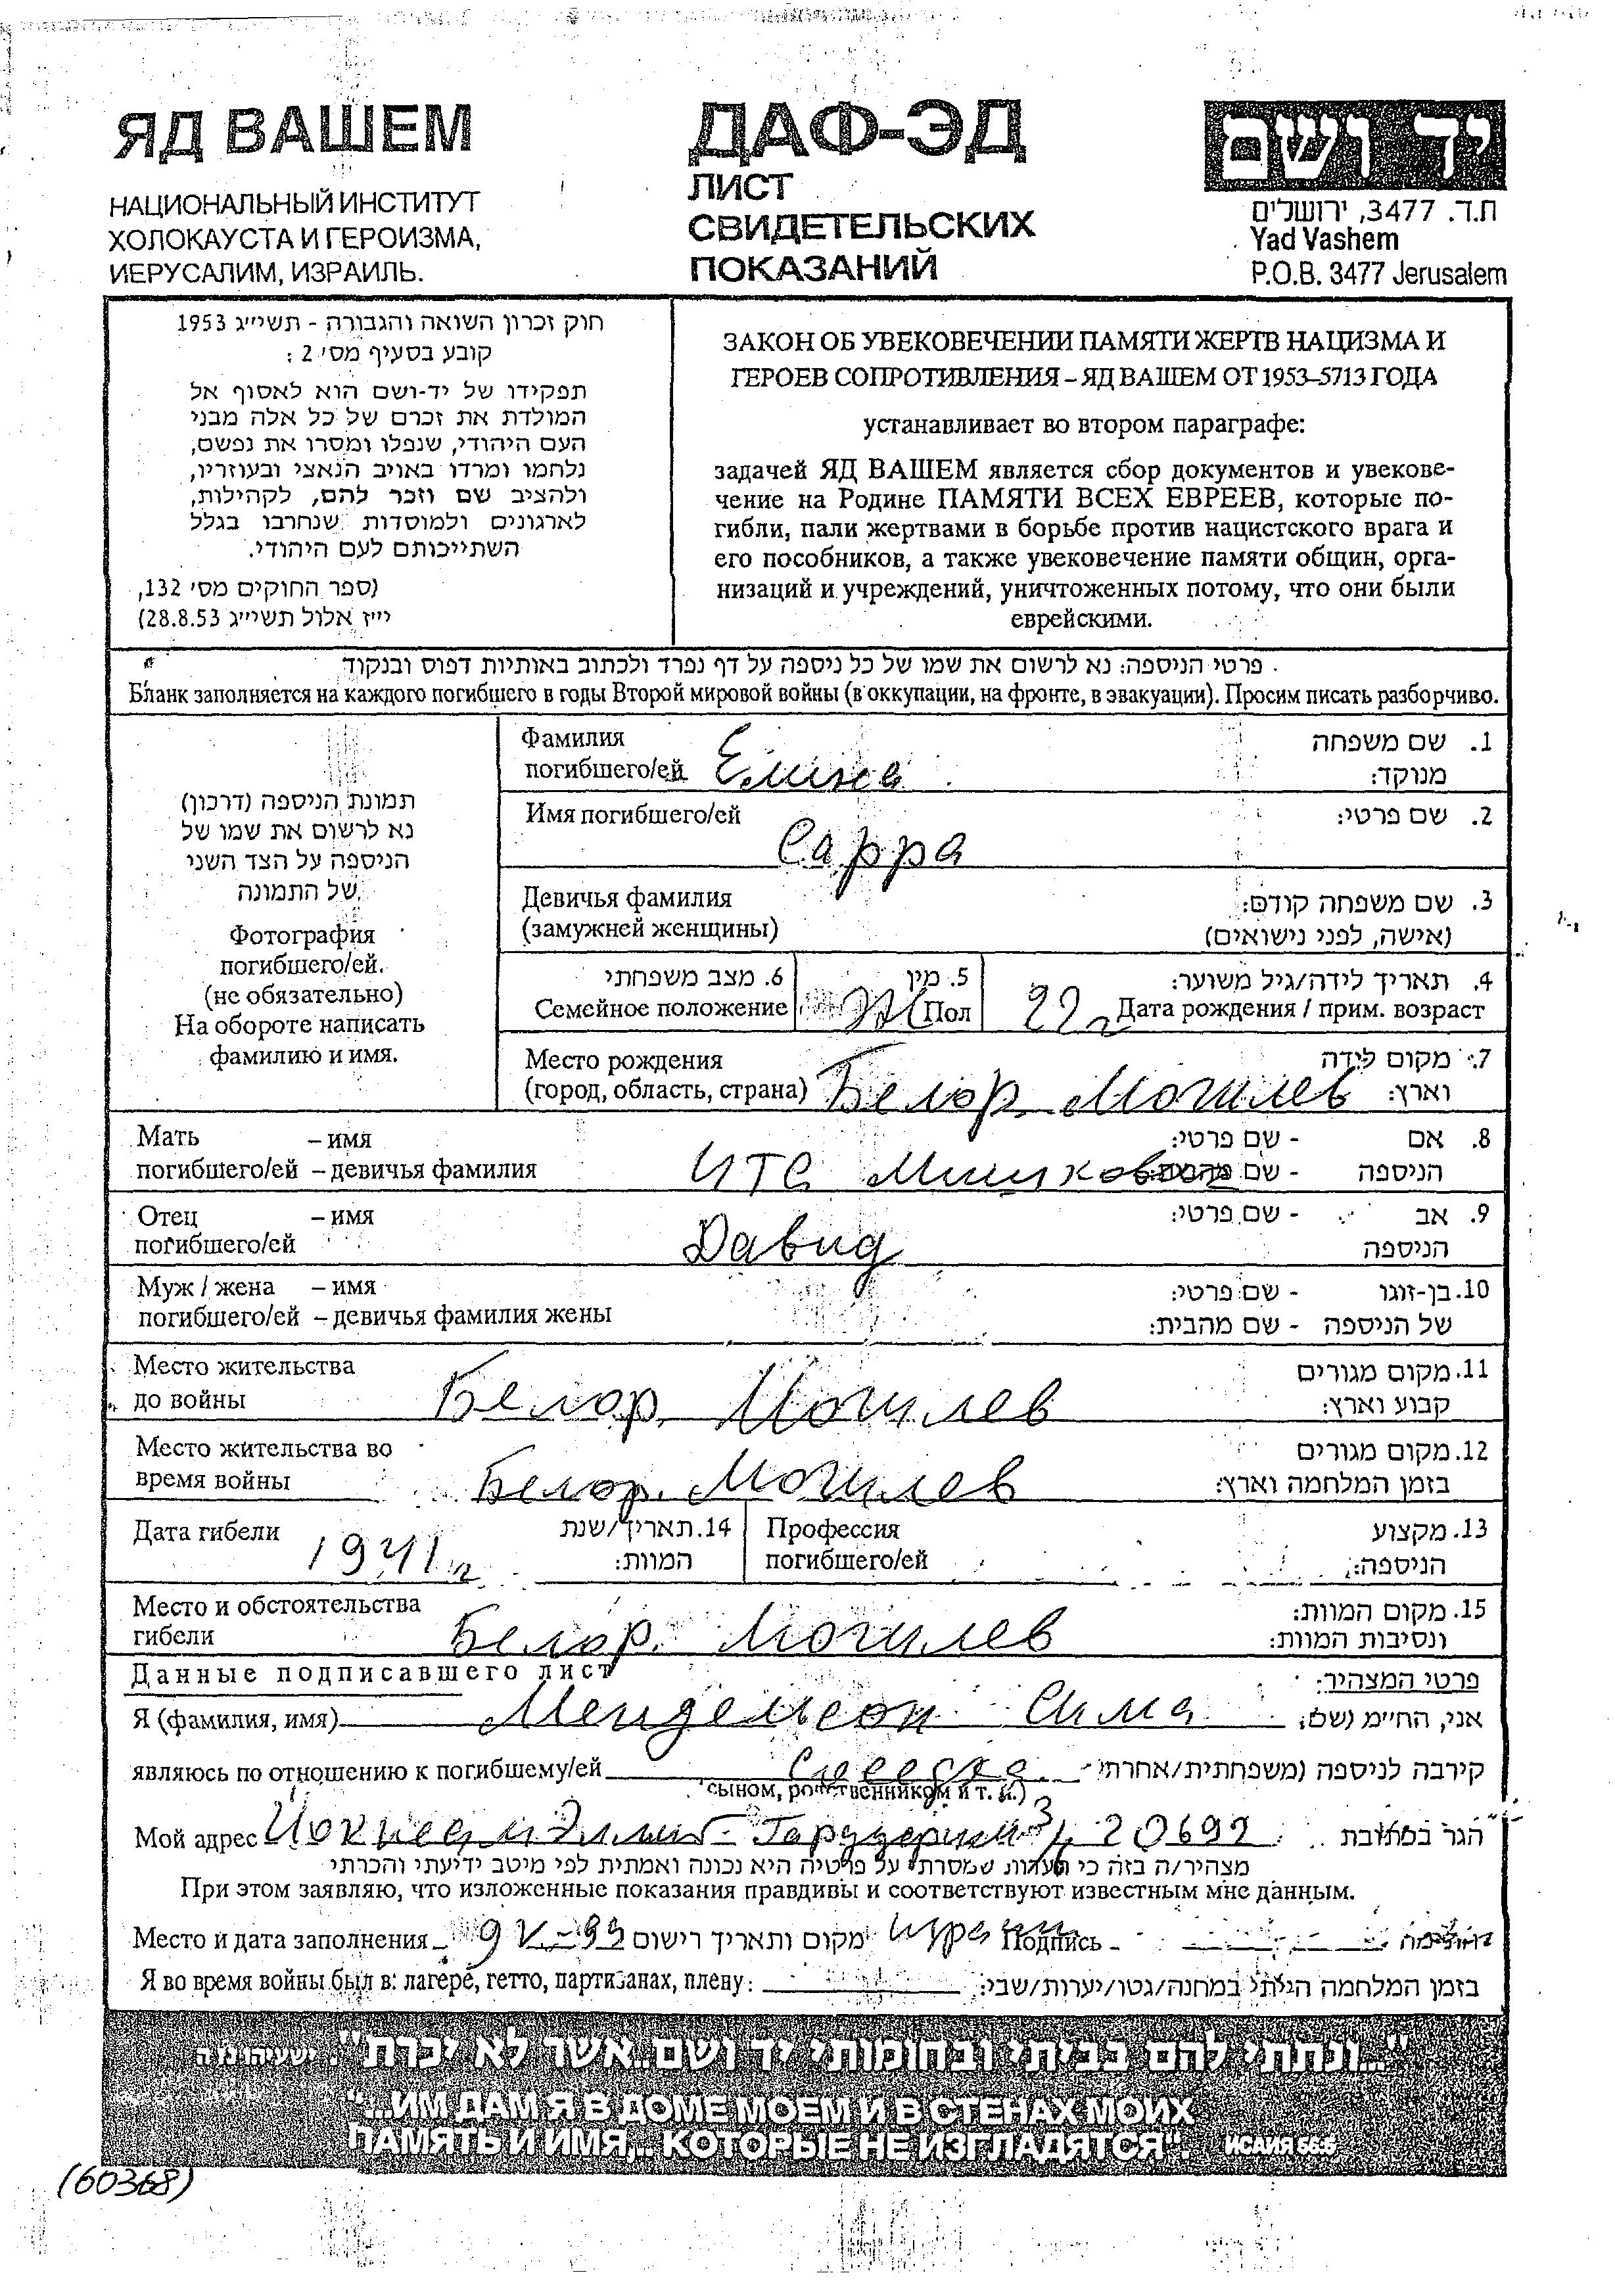 ЯД ВАШЕМ
НАЦИОНАЛЬНЫЙ ИНСТИТУТ
ХОЛОКАУСТА И ГЕРОИЗМА,
ИЕРУСАЛИМ, ИЗРАИЛЬ.
ДАФ-ЭД
ЛИСТ
СВИДЕТЕЛЬСКИХ
ПОКАЗАНИЙ
יד ושם
ת.ד. 3477, ירושלים
Yad Vashem
P.O.B. 3477 Jerusalem
חוק זכרון השואה והגבורה - תשי״ג 1953
קובע בסעיף מס׳ 2 :
תפקידו של יד-ושם הוא לאסוף אל
המולדת את זכרם של כל אלה מבני
העם היהודי, שנפלו ומסרו את נפשם,
נלחמו ומרדו באויב הנאצי ובעוזריו,
ולהציב שם וזכר להם, לקהילות,
לארגונים ולמוסדות שנחרבו בגלל
השתייכותם לעם היהודי.
(ספר החוקים מס׳ 132,
י״ז אלול תשי״ג 28.8.53)
ЗАКОН ОБ УВЕКОВЕЧЕНИИ ПАМЯТИ ЖЕРТВ НАЦИЗМА И
ГЕРОЕВ СОПРОТИВЛЕНИЯ – ЯД ВАШЕМ ОТ 1953–5713 ГОДА
устанавливает во втором параграфе:
задачей ЯД ВАШЕМ является сбор документов и увекове-
чение на Родине ПАМЯТИ ВСЕХ ЕВРЕЕВ, которые по-
гибли, пали жертвами в борьбе против нацистского врага и
его пособников, а также увековечение памяти общин, орга-
низаций и учреждений, уничтоженных потому, что они были
еврейскими.
פרטי הניספה: נא לרשום את שמו של כל ניספה על דף נפרד ולכתוב באותיות דפוס ובנקוד
Бланк заполняется на каждого погибшего в годы Второй мировой войны (в оккупации, на фронте, в эвакуации). Просим писать разборчиво.
תמונת הניספה (דרכון)
נא לרשום את שמו של
הניספה על הצד השני
של התמונה.
Фотография
погибшего/ей.
(не обязательно)
На обороте написать
фамилию и имя.
Фамилия 1. שם משפחה
погибшего/ей Елина מנוקד:
Имя погибшего/ей 2. שם פרטי:
Сарра
Девичья фамилия 3. שם משפחה קודם:
(замужней женщины) (אישה, לפני נישואים)
6. מצב משפחתי 5. מין 4. תאריך לידה/גיל משוער:
Семейное положение Ж Пол 22 г Дата рождения / прим. возраст
Место рождения 7. מקום לידה
(город, область, страна) Белор. Могилев וארץ:
Мать – имя 8. אם - שם פרטי:
погибшего/ей – девичья фамилия הניספה - שם
Отец – имя 9. אב - שם פרטי:
погибшего/ей Давид הניספה
Муж / жена – имя 10. בן-זוגו - שם פרטי:
погибшего/ей – девичья фамилия жены של הניספה - שם מהבית:
Место жительства 11. מקום מגורים
до войны Белор. Могилев קבוע וארץ:
Место жительства во 12. מקום מגורים
время войны Белор. Могилев בזמן המלחמה וארץ:
Дата гибели 1941 г 14. תאריך/שנת Профессия 13. מקצוע
המוות: погибшего/ей הניספה:
Место и обстоятельства 15. מקום המוות:
гибели Белор. Могилев ונסיבות המוות:
Данные подписавшего лист פרטי המצהיר:
Я (фамилия, имя) Мендельсон Сима אני, הח״מ (שם)
являюсь по отношению к погибшему/ей Соседка קירבה לניספה (משפחתית/אחרת)
сыном, родственником и т. п.)
Мой адрес 3/4 20692 הגר בכתובת
מצהיר/ה בזה כי העדות שמסרתי על פרטיה היא נכונה ואמתית לפי מיטב ידיעתי והכרתי
При этом заявляю, что изложенные показания правдивы и соответствуют известным мне данным.
Место и дата заполнения 9 V-99 מקום ותאריך רישום Подпись חתימה
Я во время войны был в: лагере, гетто, партизанах, плену: בזמן המלחמה הייתי במחנה/גטו/יערות/שבי:
"...ונתתי להם בביתי ובחומותי יד ושם..אשר לא יכרת". ישעיהו נו ה
"...ИМ ДАМ Я В ДОМЕ МОЕМ И В СТЕНАХ МОИХ
ПАМЯТЬ И ИМЯ,.. КОТОРЫЕ НЕ ИЗГЛАДЯТСЯ". ИСАИЯ 56:5
(60368)